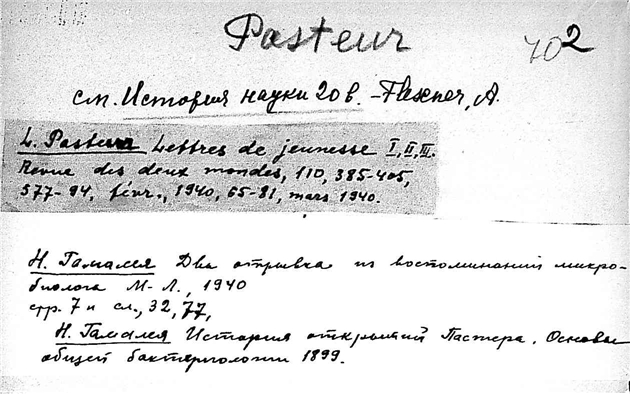 Pasteur
402
см. История науки 20 в. - Flexner, A.
L. Pasteur Lettres de jeunesse I, II, III.
Revue des deux mondes, 110, 385-405,
577-94, févr., 1940, 65-81, mars 1940.
Н. Гамалея Два отрывка из воспоминаний микро-
биолога М-Л., 1940
стр. 7 и сл., 32, 77,
Н. Гамалея История открытий Пастера. Основы
общей бактериологии 1899.